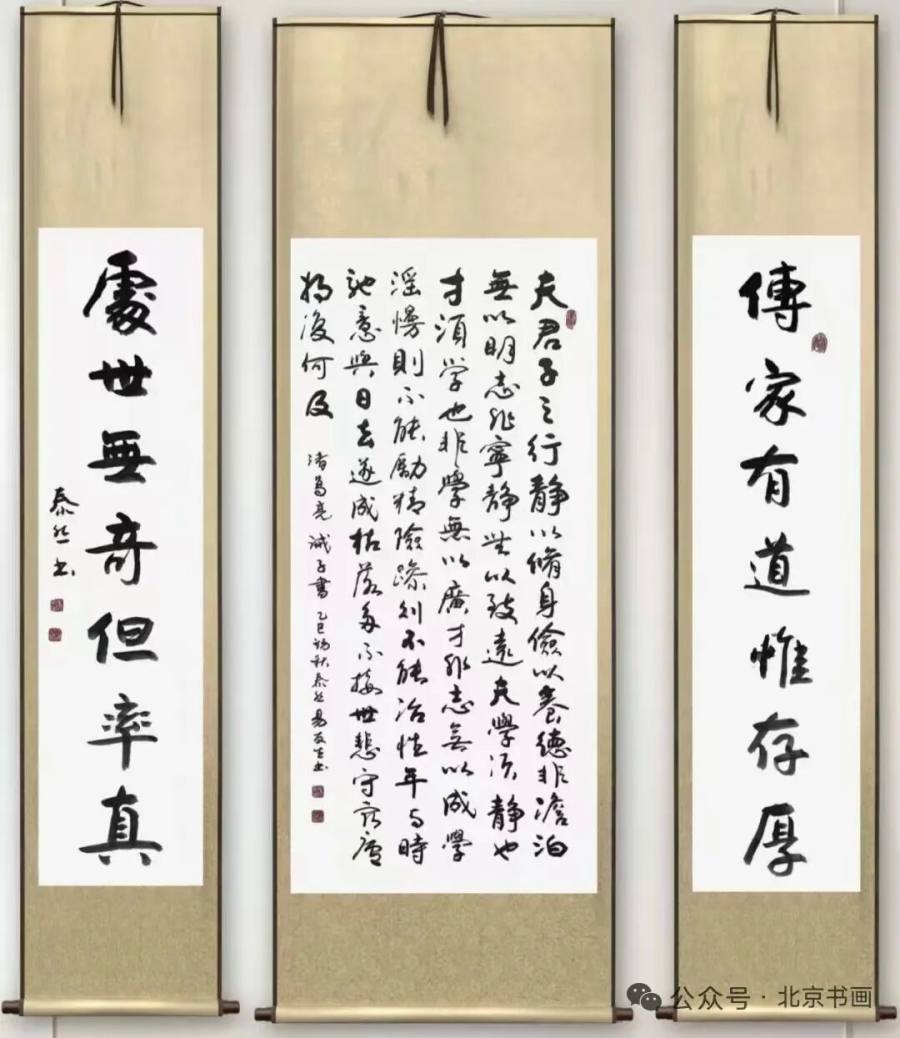 傳家有道惟存厚
夫君子之行静以脩身儉以養德非澹泊
無以明志非寧静無以致遠夫學须静也
才須学也非學無以廣才非志無以成學
滛慢則不能勵精險躁则不能冶性年与時
馳意與日去遂成枯落多不接世悲守窮廬
将復何及
诸葛亮 诫子書 乙巳初秋泰然易生书
處世無奇但率真
泰然书
公众号·北京书画